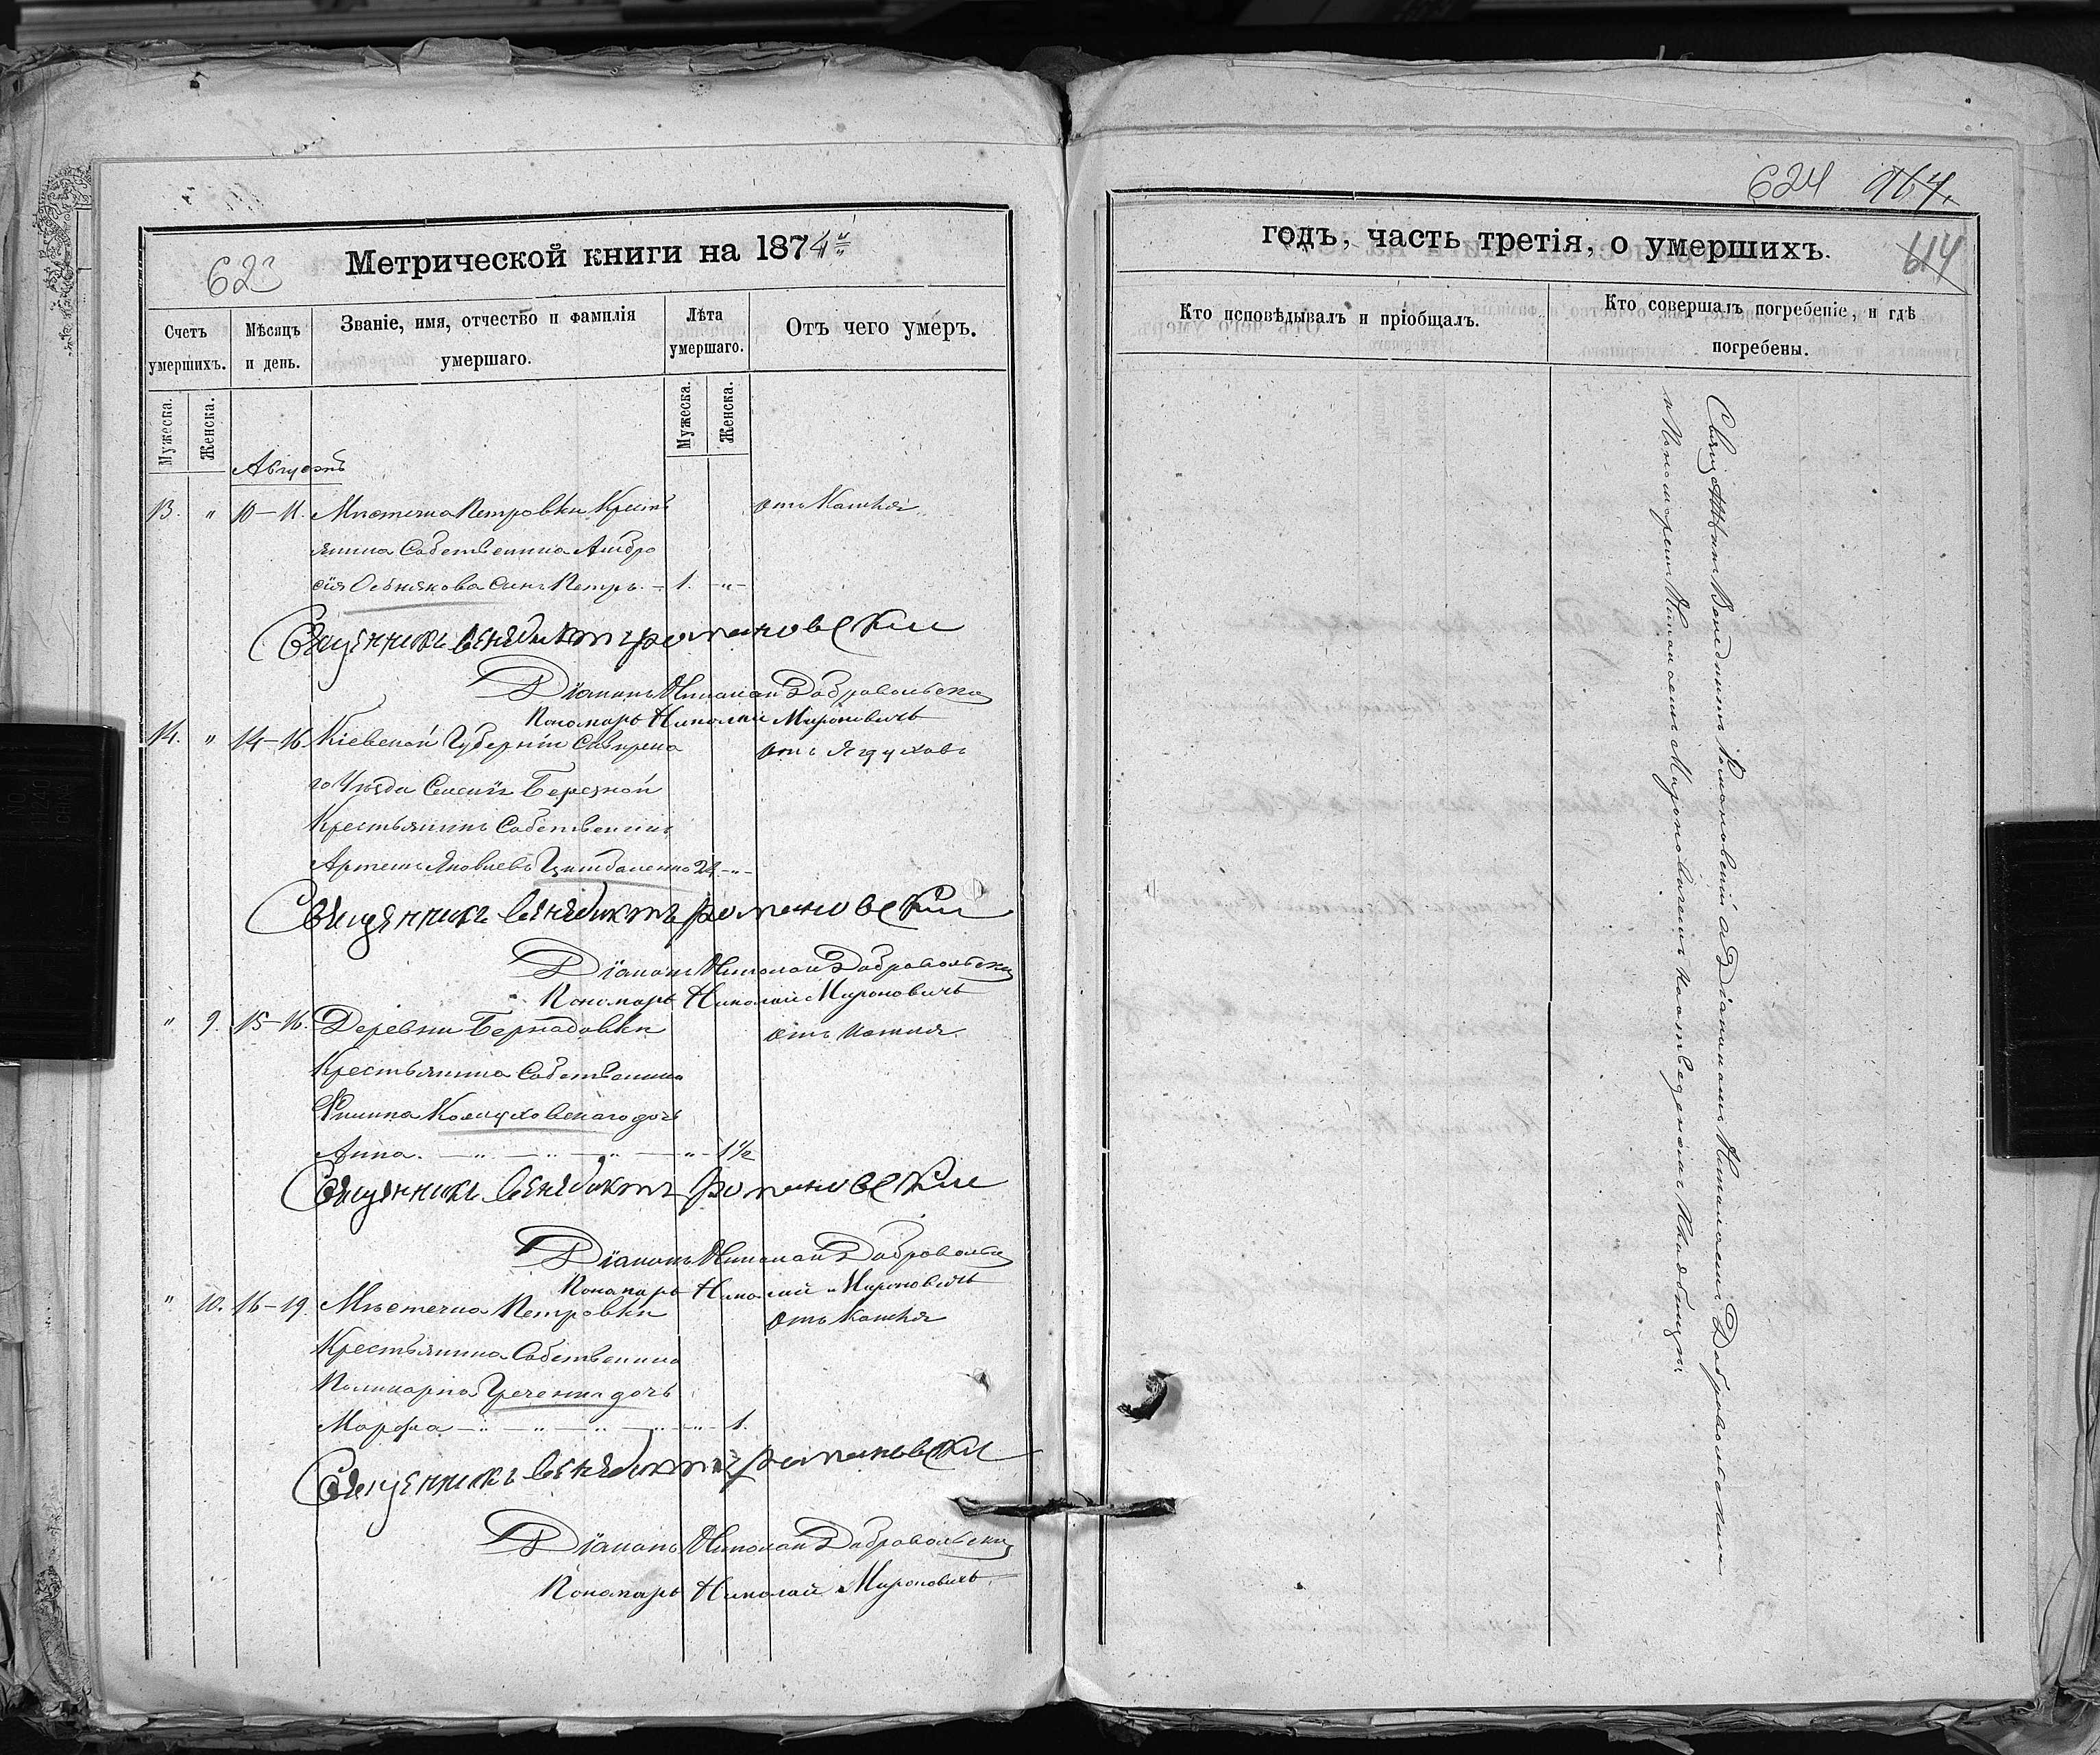 Метрической книги на 1874й
623
Счетъ умершихъ.
Мѣсяцъ и день.
Званіе, имя, отчество и фамилія умершаго.
Лѣта умершаго.
Отъ чего умеръ.
Мужеска.
Женска.
Мужеска.
Женска.
Августъ
13. " 10-11. Мѣстечка Петровки Кресть отъ Кашля
янина Собственника Амбро
сія сынъ Петръ. - 1. -"-
Священникъ Венедиктъ Романовскій
Діаконъ Николай Добровольскій
Пономарь Николай Мироновичъ
14. " 14-16. Кіевской Губерніи Сквирска отъ
го Уѣзда Березной
Крестьянинъ Собственникъ
Артемъ Яковлевъ Цимбаленко 24 -"-
Священникъ Венедиктъ Романовскій
Діаконъ Николай Добровольскій
Пономарь Николай Мироновичъ
" 9. 15-16. Деревни Бернадовки отъ кашля.
Крестьянина Собственника
Филиппа дочь
Анна. - " - " - " - " - 1 1/2
Священникъ Венедиктъ Романовскій
Діаконъ Николай Добровольскій
Пономарь Николай Мироновичъ
" 10. 16-19. Мѣстечка Петровки отъ Кашля
Крестьянина Собственника
Поликарпа дочь
Марфа - " - " - " - " - 1.
Священникъ Венедиктъ Романовскій
Діаконъ Николай Добровольскій
Пономарь Николай Мироновичъ
624 964.
614
годъ, часть третія, о умершихъ.
Кто исповѣдывалъ и пріобщалъ.
Кто совершалъ погребеніе, и гдѣ погребены.
Священникъ Венедиктъ Романовскій съ Діакономъ Николаемъ Добровольскимъ
и Пономаремъ Николаемъ Мироновичемъ на отведенномъ Кладбищѣ